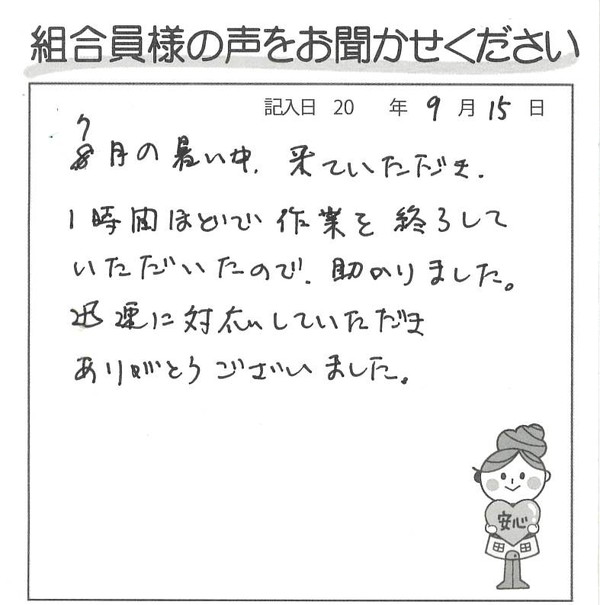 組合員様の声をお聞かせください
記入日 20 年 9月 15日
7月の暑い中、来ていただき、
1時間ほどで作業を終了して
いただいたので、助かりました。
迅速に対応していただき
ありがとうございました。
安心